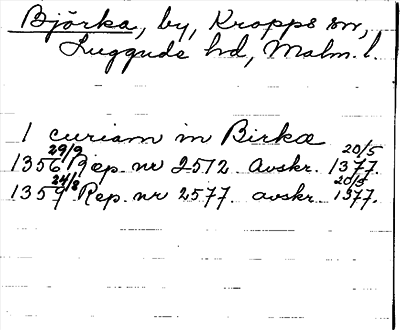 Björka, by, Kropps sn,
Luggude hd, Malm. l.
1 curiam in Birka
29/9 20/5
1356 Rep. nr 2512 Avskr. 1377.
24/8 20/5
1357 Rep. nr 2577 avskr. 1377.